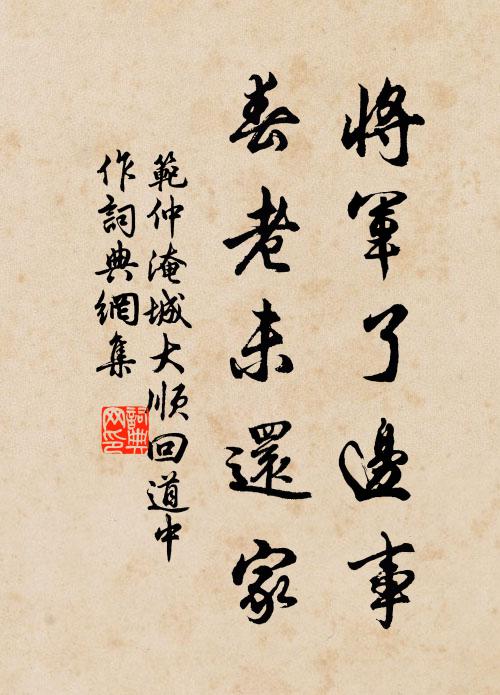 將軍了邊事
春老未還家
範仲淹城大順回道中
作詞典網集
詞典網印